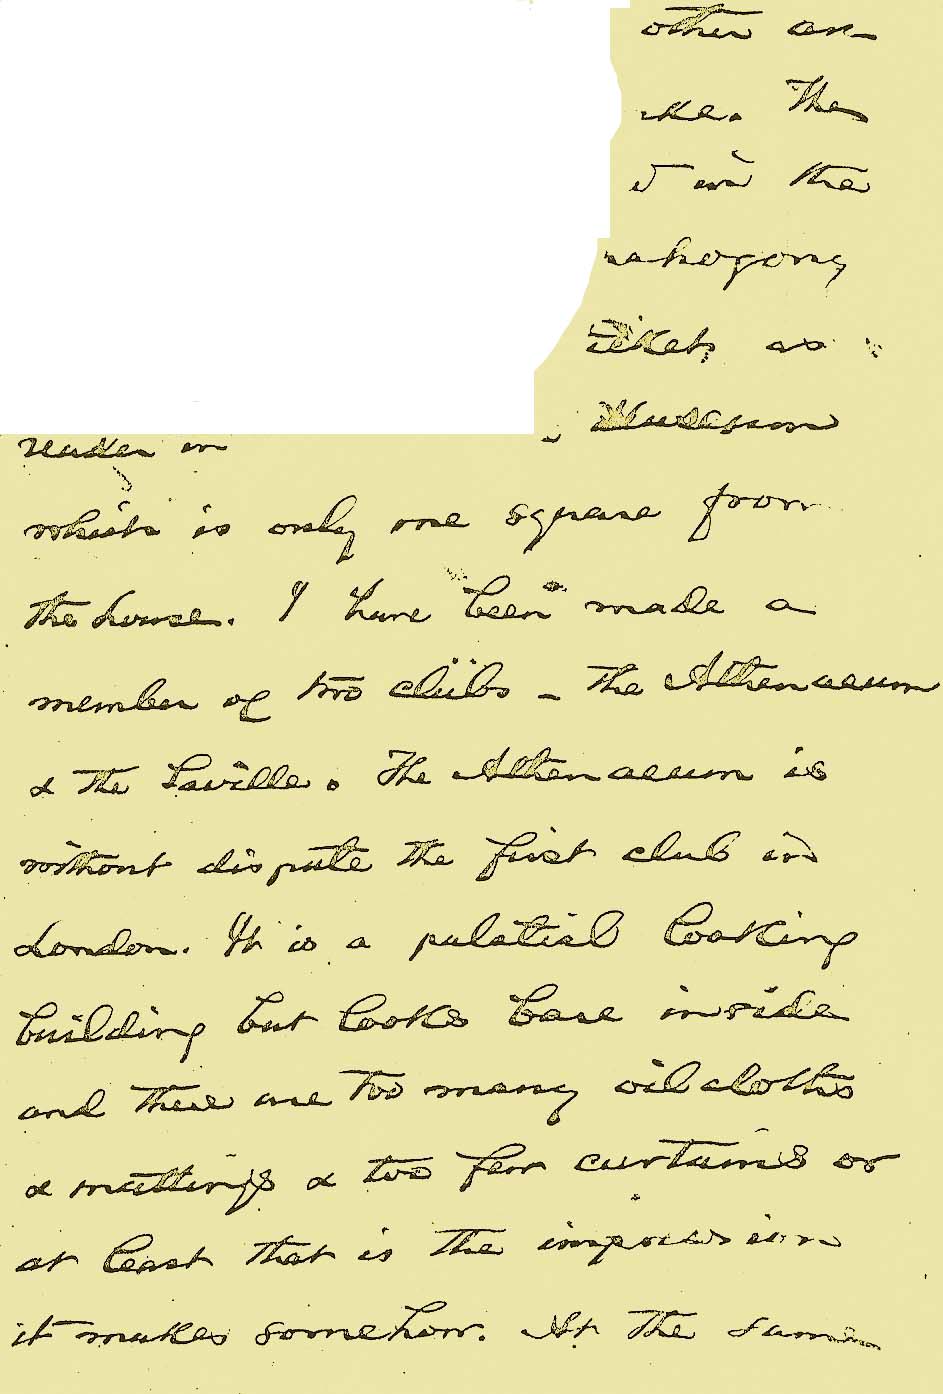 other an-
The
in the
mahogony
tickets as
reader in Museum
which is only one square from
the house. I have been made a
member of two clubs - the Athenaeum
& the Saville. The Athenaeum is
without dispute the first club in
London. It is a palatial looking
building but looks bare inside
and there are too many oilcloths
& mattings & too few curtains or
at least that is the impression
it makes somehow. At the same